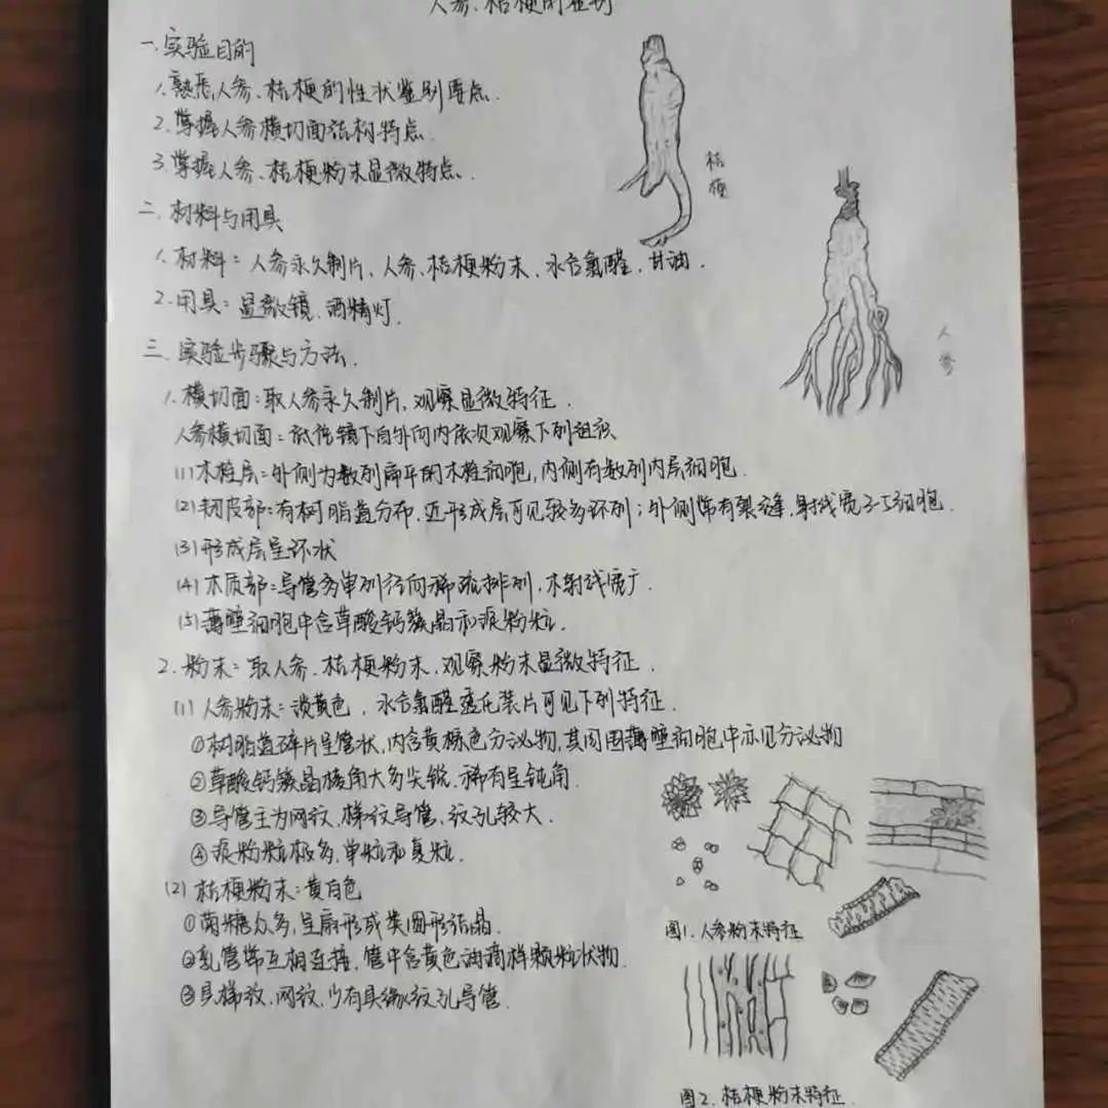 人参、桔梗的鉴别
一、实验目的
1.熟悉人参、桔梗的性状鉴别要点.
2.掌握人参横切面结构特点.
3.掌握人参、桔梗粉末显微特点.
桔梗
二、材料与用具
1.材料：人参永久制片、人参、桔梗粉末、水合氯醛、甘油.
2.用具：显微镜、酒精灯.
人参
三、实验步骤与方法.
1.横切面：取人参永久制片，观察显微特征.
人参横切面：低倍镜下自外向内依次观察下列组织
(1)木栓层：外侧为数列扁平的木栓细胞，内侧有数列内层细胞.
(2)韧皮部：有树脂道分布，近形成层可见较多环列；外侧常有裂缝，射线宽3-5细胞.
(3)形成层呈环状
(4)木质部：导管多单列径向稀疏排列，木射线宽广.
(5)薄壁细胞中含草酸钙簇晶和淀粉粒.
2.粉末：取人参、桔梗粉末，观察粉末显微特征.
(1)人参粉末：淡黄色，水合氯醛透化装片可见下列特征.
①树脂道碎片呈管状，内含黄棕色分泌物，其周围薄壁细胞中亦见分泌物
②草酸钙簇晶棱角大多尖锐，稀有呈钝角.
③导管主为网纹、梯纹导管，纹孔较大.
④淀粉粒极多，单粒和复粒.
(2)桔梗粉末：黄白色
①菊糖众多，呈扇形或类圆形结晶.
②乳管常互相连接，管中含黄色油滴样颗粒状物.
③具梯纹、网纹，少有具缘纹孔导管.
图1.人参粉末特征
图2.桔梗粉末特征.